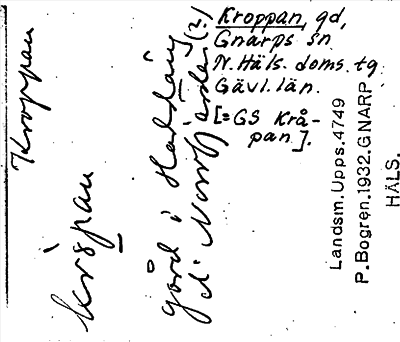 Kroppan, gd,
Gnarps sn
N. Häls. doms. tg
Gävl. län.
[=GS Krå-
pan].
Kroppan
kråpan
gård i
Landsm. Upps. 4749
P. Bogren. 1932. GNARP
HÄLS.